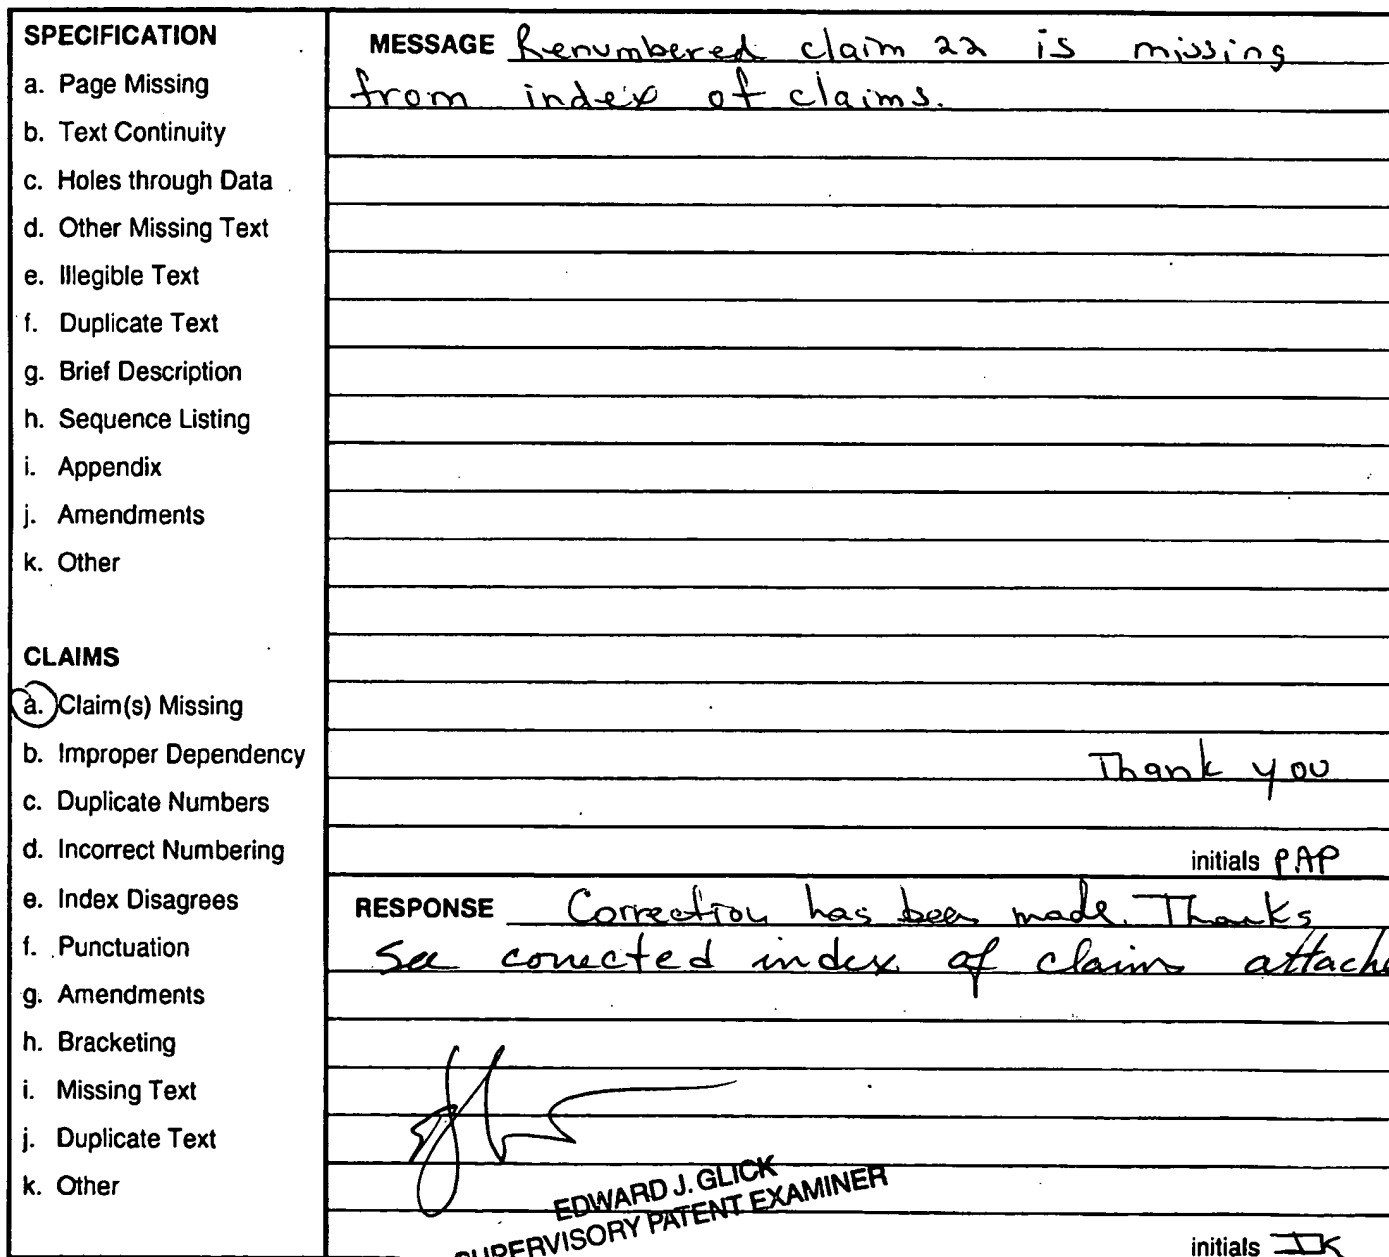 SPECIFICATION
a. Page Missing
b. Text Continuity
c. Holes through Data
d. Other Missing Text
e. Illegible Text
f. Duplicate Text
g. Brief Description
h. Sequence Listing
i. Appendix
j. Amendments
k. Other
CLAIMS
a. Claim(s) Missing
b. Improper Dependency
c. Duplicate Numbers
d. Incorrect Numbering
e. Index Disagrees
f. Punctuation
g. Amendments
h. Bracketing
i. Missing Text
j. Duplicate Text
k. Other
MESSAGE Renumbered claim 22 is missing
from index of claims.
Thank you
initials PAP
RESPONSE Correction has been made. Thanks
See corrected index of claims attache
EDWARD J. GLICK
SUPERVISORY PATENT EXAMINER
initials IK